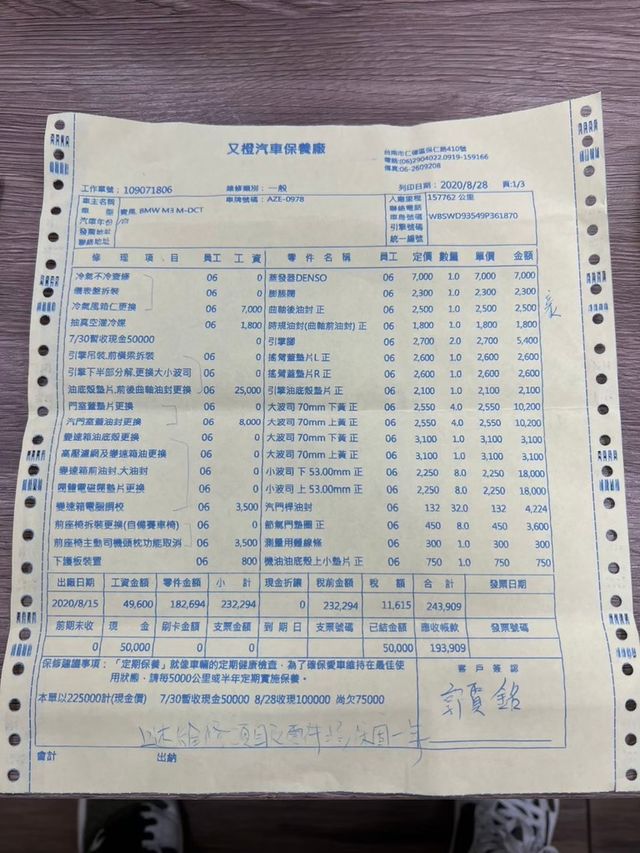 又橙汽車保養廠
台南市仁德區保仁路410號
電話:(06)2904022.0919-159166
傳真:06-2609208
工作單號：109071806 維修類別：一般 列印日期：2020/8/28 頁:1/3
車主名稱 車牌號碼：AZE-0978 入廠里程 157762 公里
車 型 寶馬. BMW M3 M-DCT 聯絡電話
汽車年份 車身號碼 WBSWD93549P361870
發票地址 引擎號碼
聯絡地址 統一編號
修 理 項 目 員工 工 資 零 件 名 稱 員工 定價 數量 單價 金額
冷氣不冷查修 06 0 蒸發器DENSO 06 7,000 1.0 7,000 7,000
儀表盤拆裝 06 0 膨脹閥 06 2,300 1.0 2,300 2,300
冷氣風箱仁更換 06 7,000 曲軸後油封 正 06 2,500 1.0 2,500 2,500
抽真空灌冷媒 06 1,800 時規油封(曲軸前油封) 正 06 1,800 1.0 1,800 1,800
7/30暫收現金50000 0 引擎腳 06 2,700 2.0 2,700 5,400
引擎吊裝.前橫梁拆裝 06 0 搖臂蓋墊片L 正 06 2,600 1.0 2,600 2,600
引擎下半部分解.更換大小波司 06 0 搖臂蓋墊片R 正 06 2,600 1.0 2,600 2,600
油底殼墊片.前後曲軸油封更換 06 25,000 引擎油底殼墊片 正 06 2,100 1.0 2,100 2,100
門室蓋墊片更換 06 0 大波司 70mm 下黃 正 06 2,550 4.0 2,550 10,200
汽門室蓋油封更換 06 8,000 大波司 70mm 上黃 正 06 2,550 4.0 2,550 10,200
變速箱油底殼更換 06 0 大波司 70mm 下黃 正 06 3,100 1.0 3,100 3,100
高壓濾網及變速箱油更換 06 0 大波司 70mm 上黃 正 06 3,100 1.0 3,100 3,100
變速箱前油封.大油封 06 0 小波司 下 53.00mm 正 06 2,250 8.0 2,250 18,000
閥體電磁閥墊片更換 06 0 小波司 上 53.00mm 正 06 2,250 8.0 2,250 18,000
變速箱電腦調校 06 3,500 汽門桿油封 06 132 32.0 132 4,224
前座椅拆裝更換(自備賽車椅) 06 0 節氣門墊圈 正 06 450 8.0 450 3,600
前座椅主動司機頭枕功能取消 06 3,500 測量用軸線條 06 300 1.0 300 300
下護板裝置 06 800 機油油底殼上小墊片 正 06 750 1.0 750 750
出廠日期 工資金額 零件金額 小 計 現金折讓 稅前金額 稅 額 合 計 發票日期
2020/8/15 49,600 182,694 232,294 0 232,294 11,615 243,909
前期未收 現 金 刷卡金額 支票金額 到 期 日 支票號碼 已結金額 應收帳款 發票號碼
0 50,000 0 0 50,000 193,909
保修建議事項：「定期保養」就像車輛的定期健康檢查，為了確保愛車維持在最佳使
用狀態，請每5000公里或半年定期實施保養。
客 戶 簽 認
本單以225000計(現金價) 7/30暫收現金50000 8/28收現100000 尚欠75000
保固一年
會計 出納